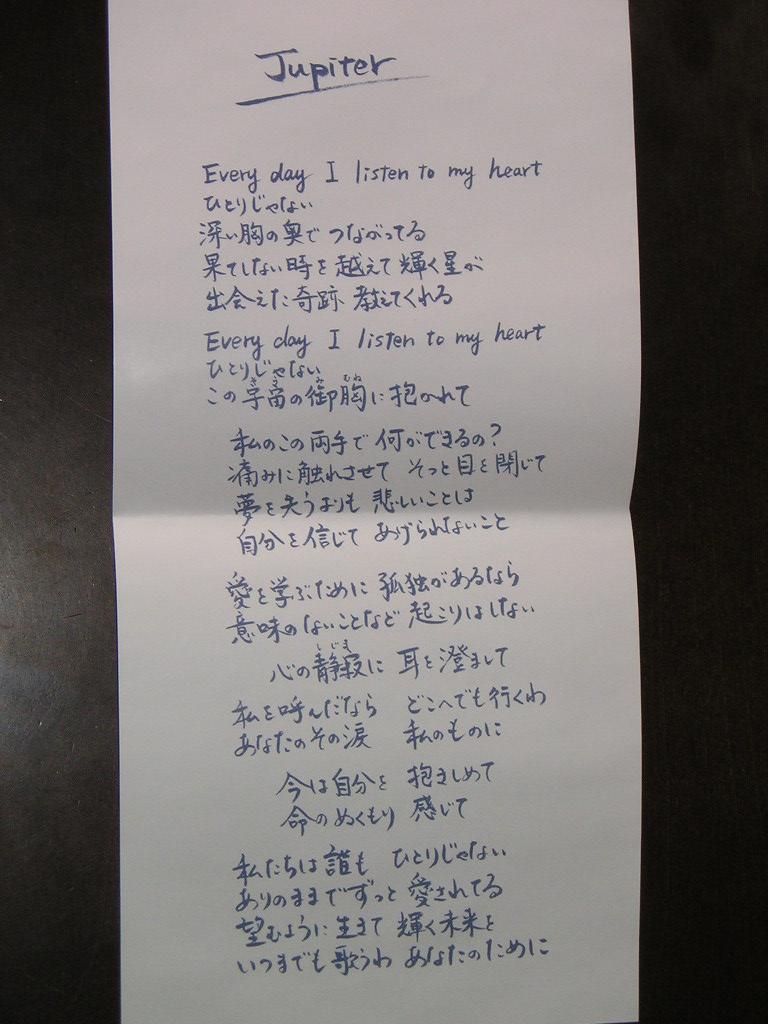 Jupiter
Every day I listen to my heart
ひとりじゃない
深い胸の奥で つながってる
果てしない時を越えて 輝く星が
出会えた奇跡 教えてくれる
Every day I listen to my heart
ひとりじゃない
み むね
この宇宙の御胸に抱かれて
私のこの両手で 何ができるの?
痛みに触れさせて そっと目を閉じて
夢を失うよりも 悲しいことは
自分を信じて あげられないこと
愛を学ぶために 孤独があるなら
意味のないことなど 起こりはしない
しじま
心の静寂に 耳を澄まして
私を呼んだなら どこへでも行くわ
あなたのその涙 私のものに
今は自分を 抱きしめて
命のぬくもり 感じて
私たちは誰も ひとりじゃない
ありのままでずっと 愛されてる
望むように生きて 輝く未来を
いつまでも歌うわ あなたのために